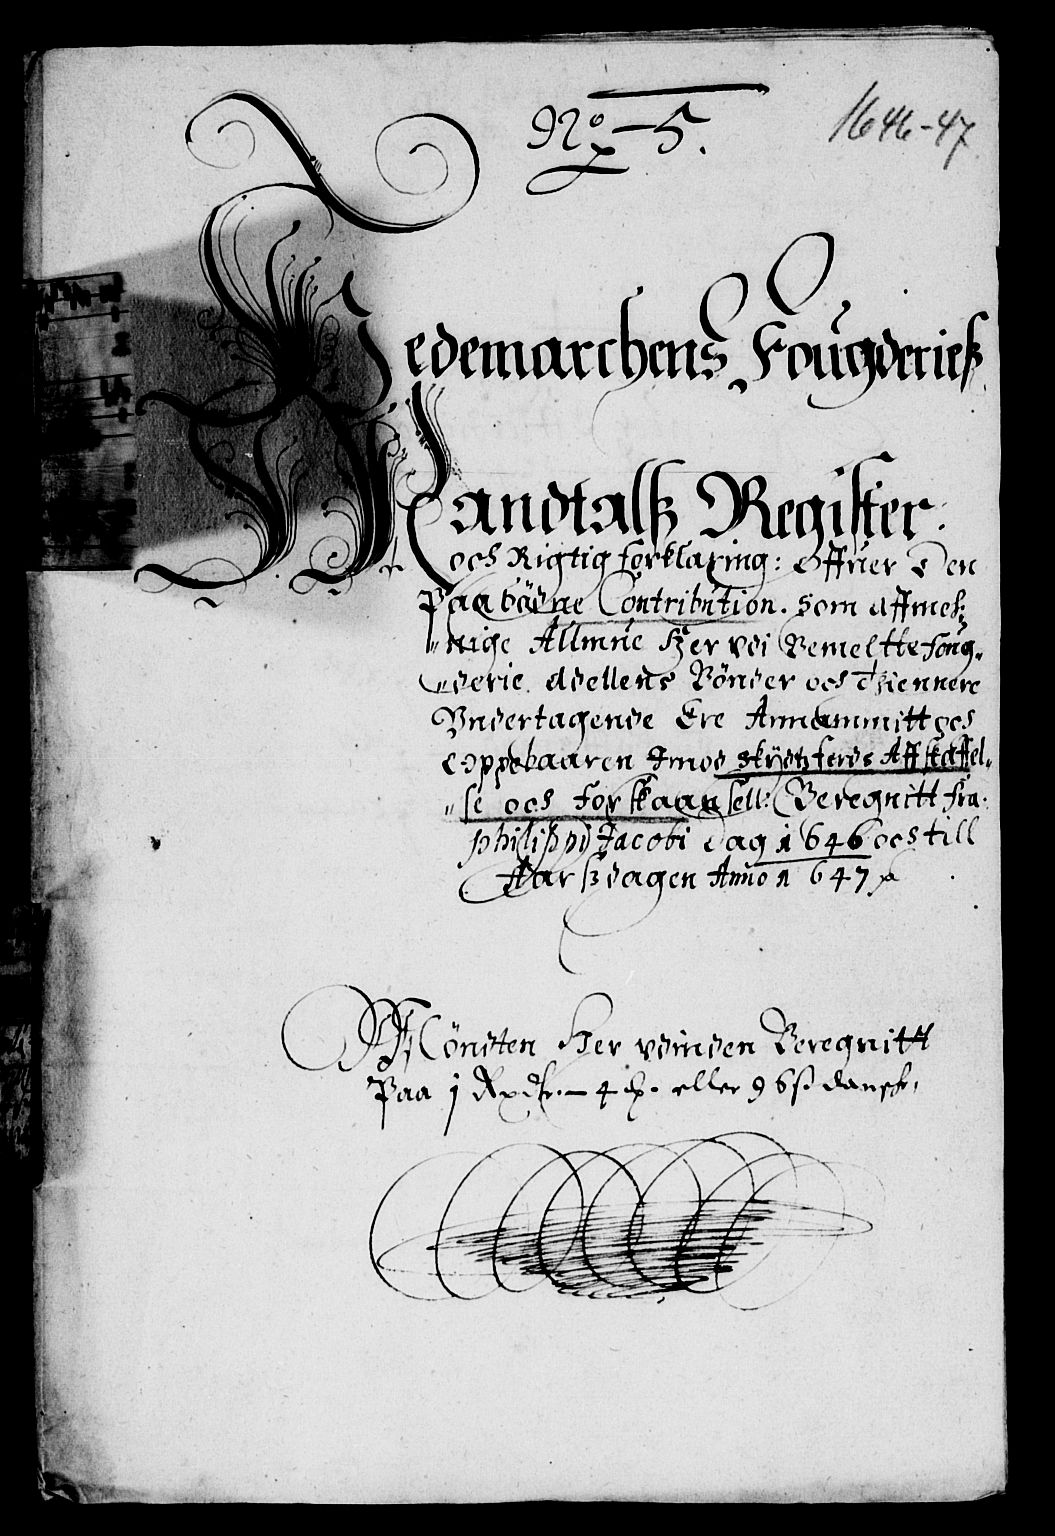 No 5.
1646-47
Hedemarchens Fougderies
Mandtalß Register.
och Rigtig forklaring: Offuer Den
Paabödne Contribution. som aff menig
nige Allmue Her vdi Bemeltte foug-
derie. Adellens Bönder och Thiennere
Vndertagende Ere Annammitt och
Oppebaaren Imod skydtzferds Affskaffel-
se och forskaansell: Beregnitt fra
philippi Jacobi dag 1646 och till
Aarßdagen Anno 1647
Mönten Her vdinden Beregnitt
Paa 1 Rxdr. 4 eller 96 ß dansk.